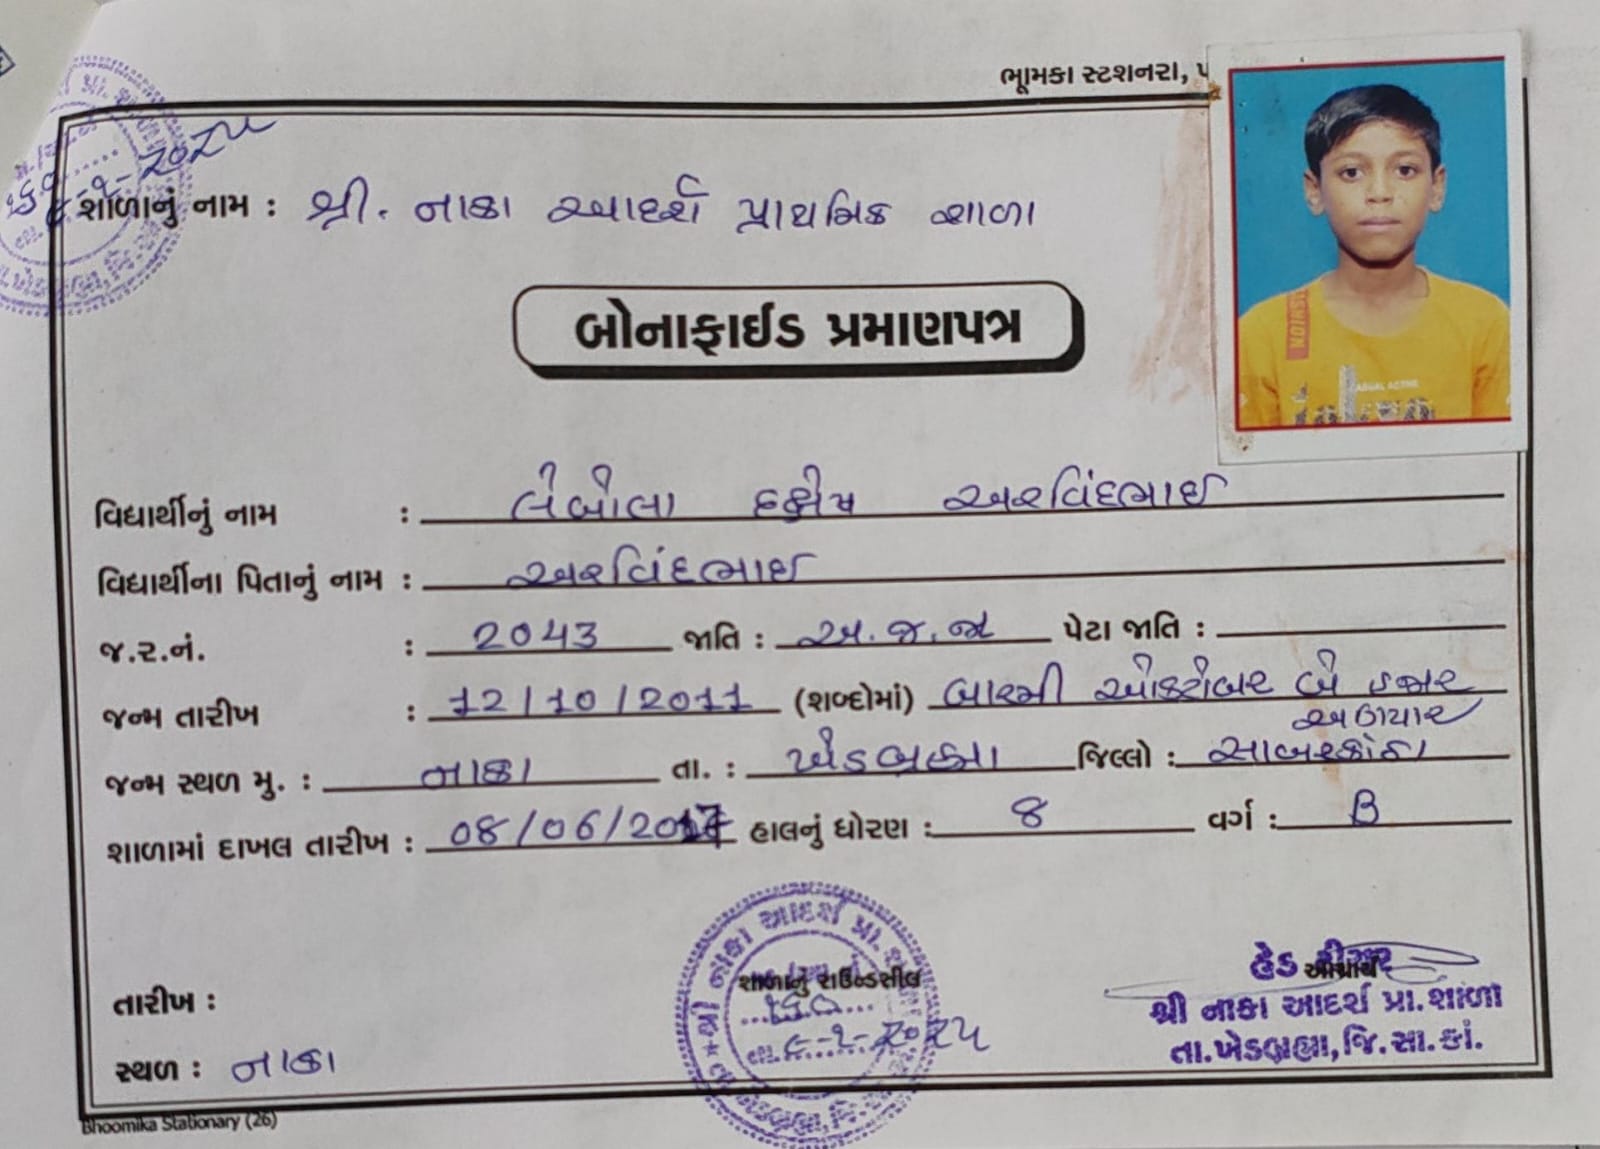 ભૂમિકા સ્ટેશનરી,
શાળાનું નામ : શ્રી. નાકા આદર્શ પ્રાથમિક શાળા
બોનાફાઈડ પ્રમાણપત્ર
વિદ્યાર્થીનું નામ : અરવિંદભાઈ
વિદ્યાર્થીના પિતાનું નામ : અરવિંદભાઈ
જ.ર.નં. : 2043 જાતિ : અ.જ.જા પેટા જાતિ :
જન્મ તારીખ : 12/10/2011 (શબ્દોમાં) બારમી ઓક્ટોબર બે હજાર
અગિયાર
જન્મ સ્થળ મુ. : નાકા તા. : ખેડબ્રહ્મા જિલ્લો : સાબરકાંઠા
શાળામાં દાખલ તારીખ : 08/06/2017 હાલનું ધોરણ : 8 વર્ગ : B
શ્રી નાકા આદર્શ પ્રા. શાળા
શાળાનું રાઉન્ડસીલ
હેડ ટીચર
આચાર્ય
તારીખ :
શ્રી નાકા આદર્શ પ્રા.શાળા
તા.ખેડબ્રહ્મા,જિ.સા.કાં.
સ્થળ : નાકા
Bhoomika Stationary (26)